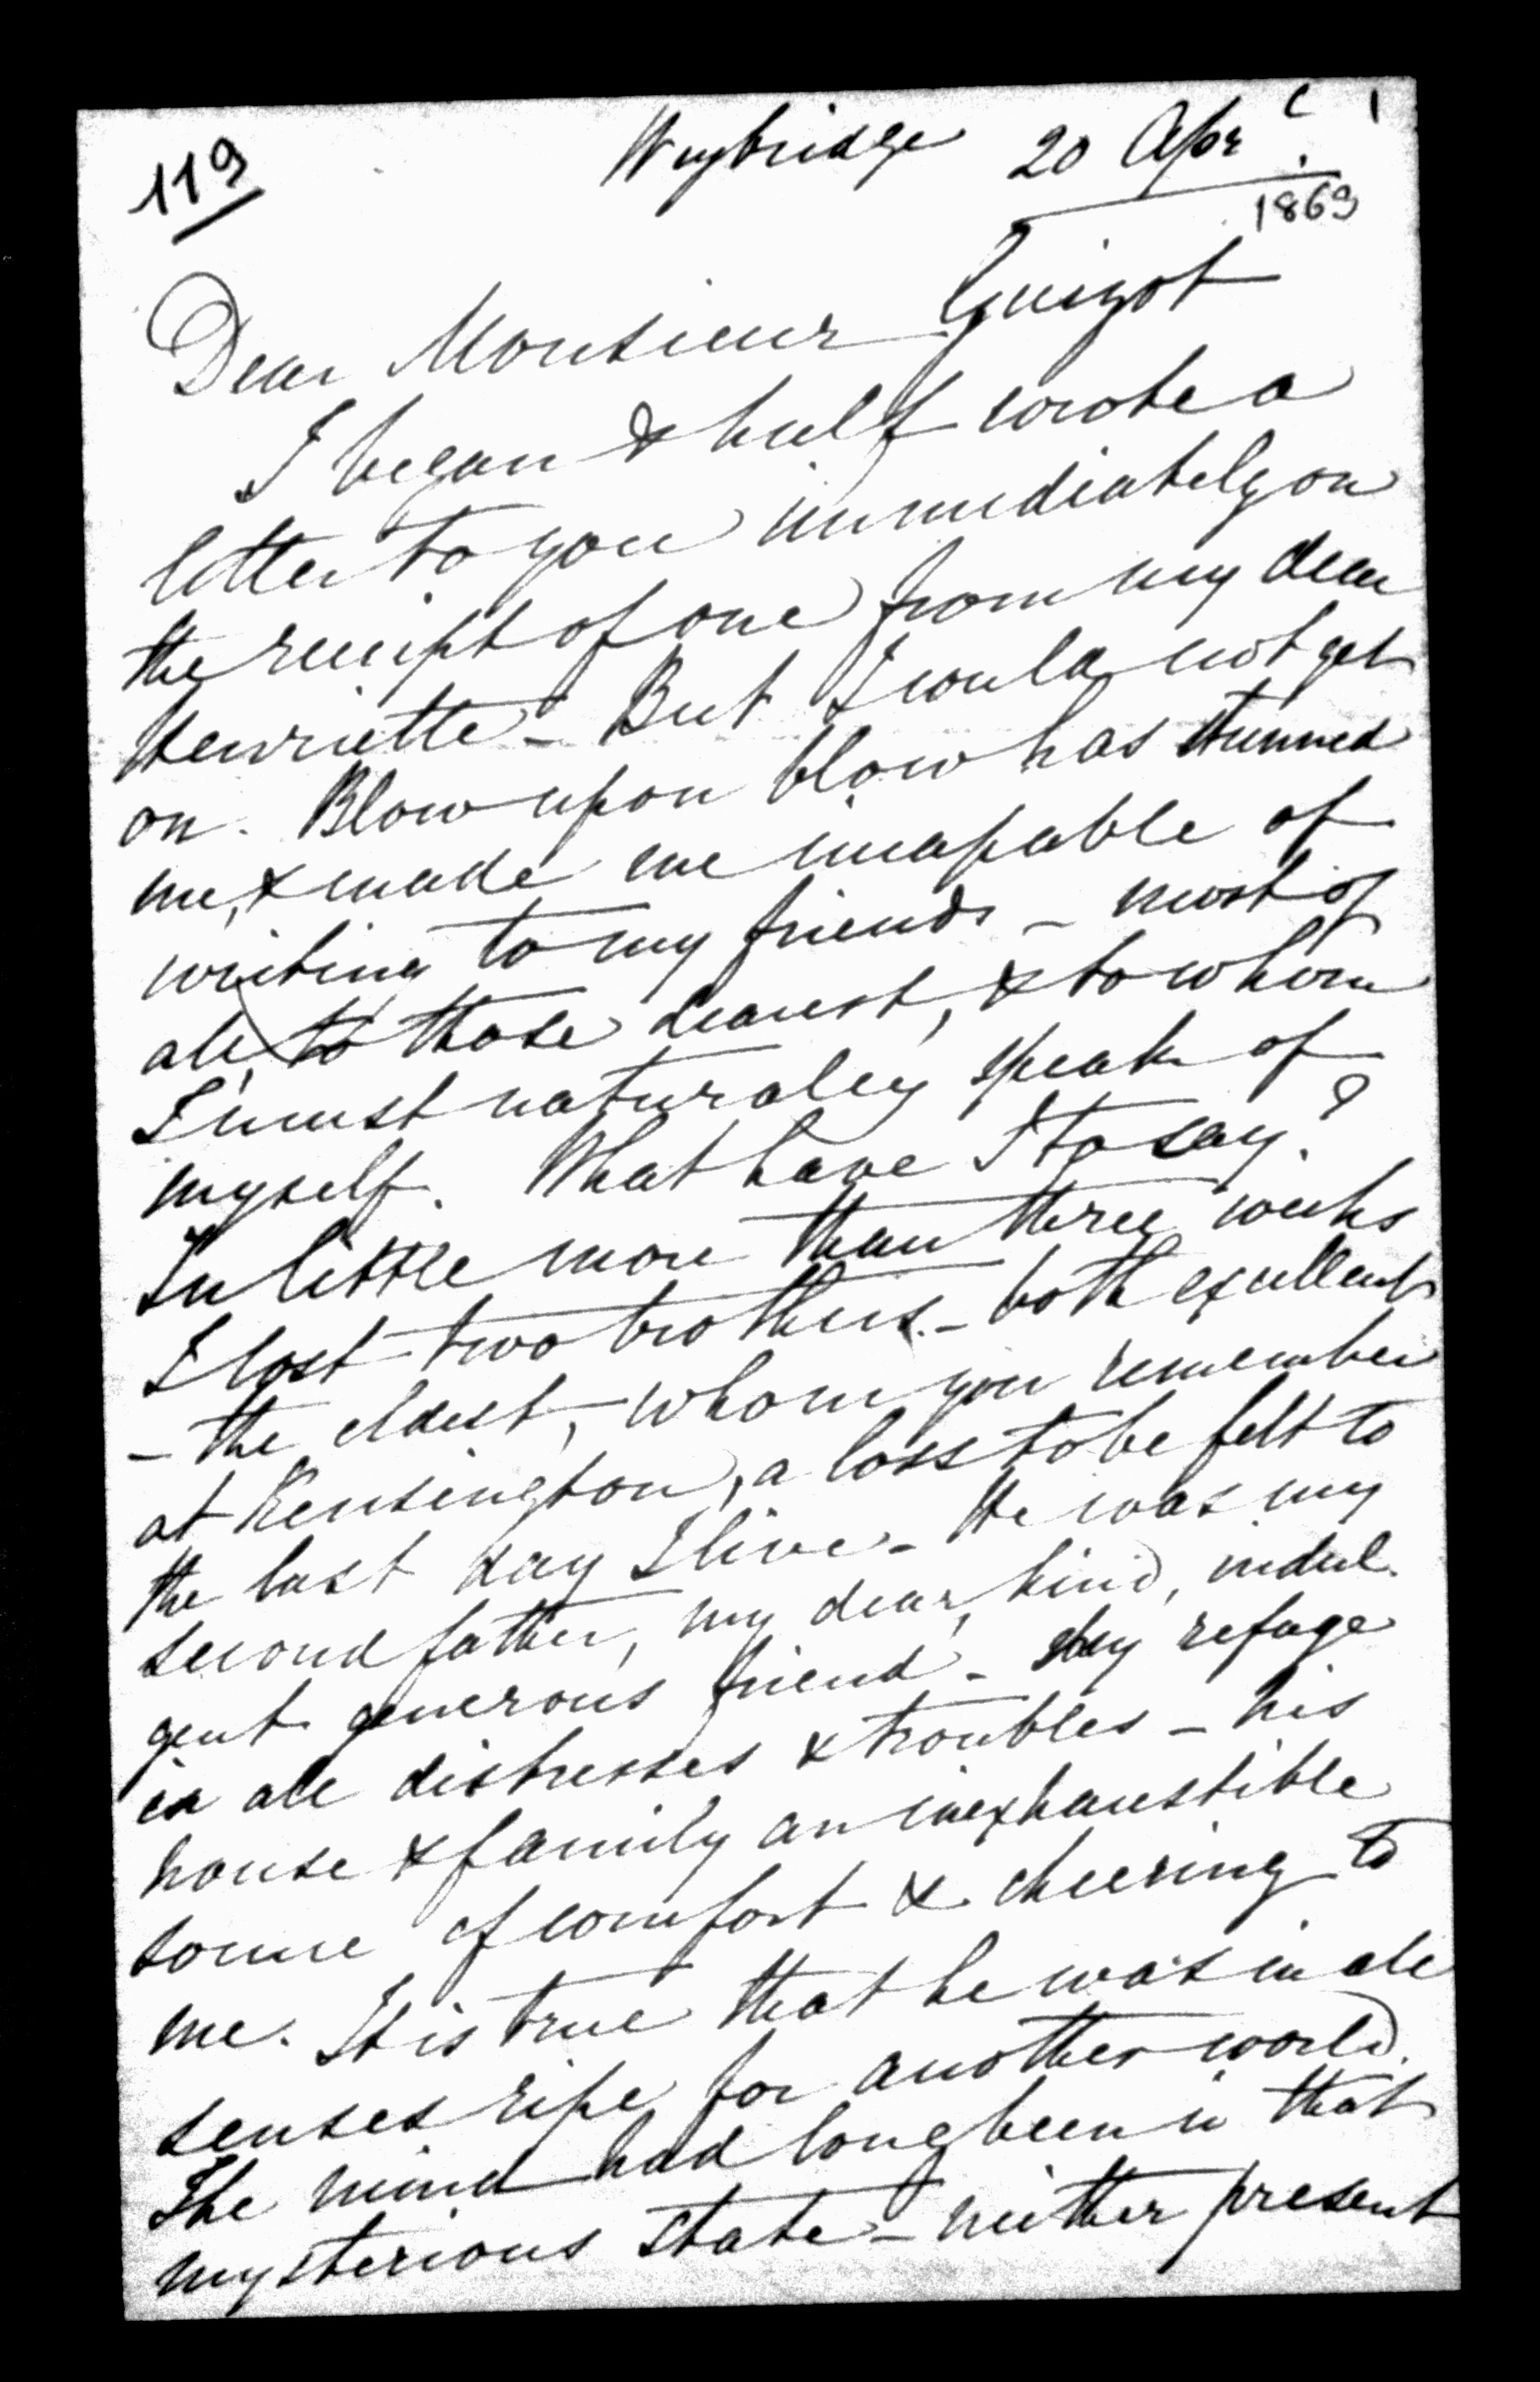 119
Weybridge 20 Apr
1869
Dear Monsieur Guizot
I began & half wrote a
letter to you immediately on
the receipt of one from my dear
Henriette - But I could not get
on. Blow upon blow has stunned
me, & made me incapable of
writing to my friends - most of
all, to those dearest, & to whom
I must naturally speak of
myself. What have I to say?
In little more than three weeks
I lost two brothers - both excellent
- the eldest, - whom you remember
at Kensington, a loss to be felt to
the last day I live - He was my
second father, my dear, kind, indul-
gent generous friend - My refuge
in all distresses & troubles - his
house & family an inexhaustible
source of comfort & cheering to
me. It is true that he was in all
senses ripe for another world.
The mind had long been in that
mysterious state - neither present